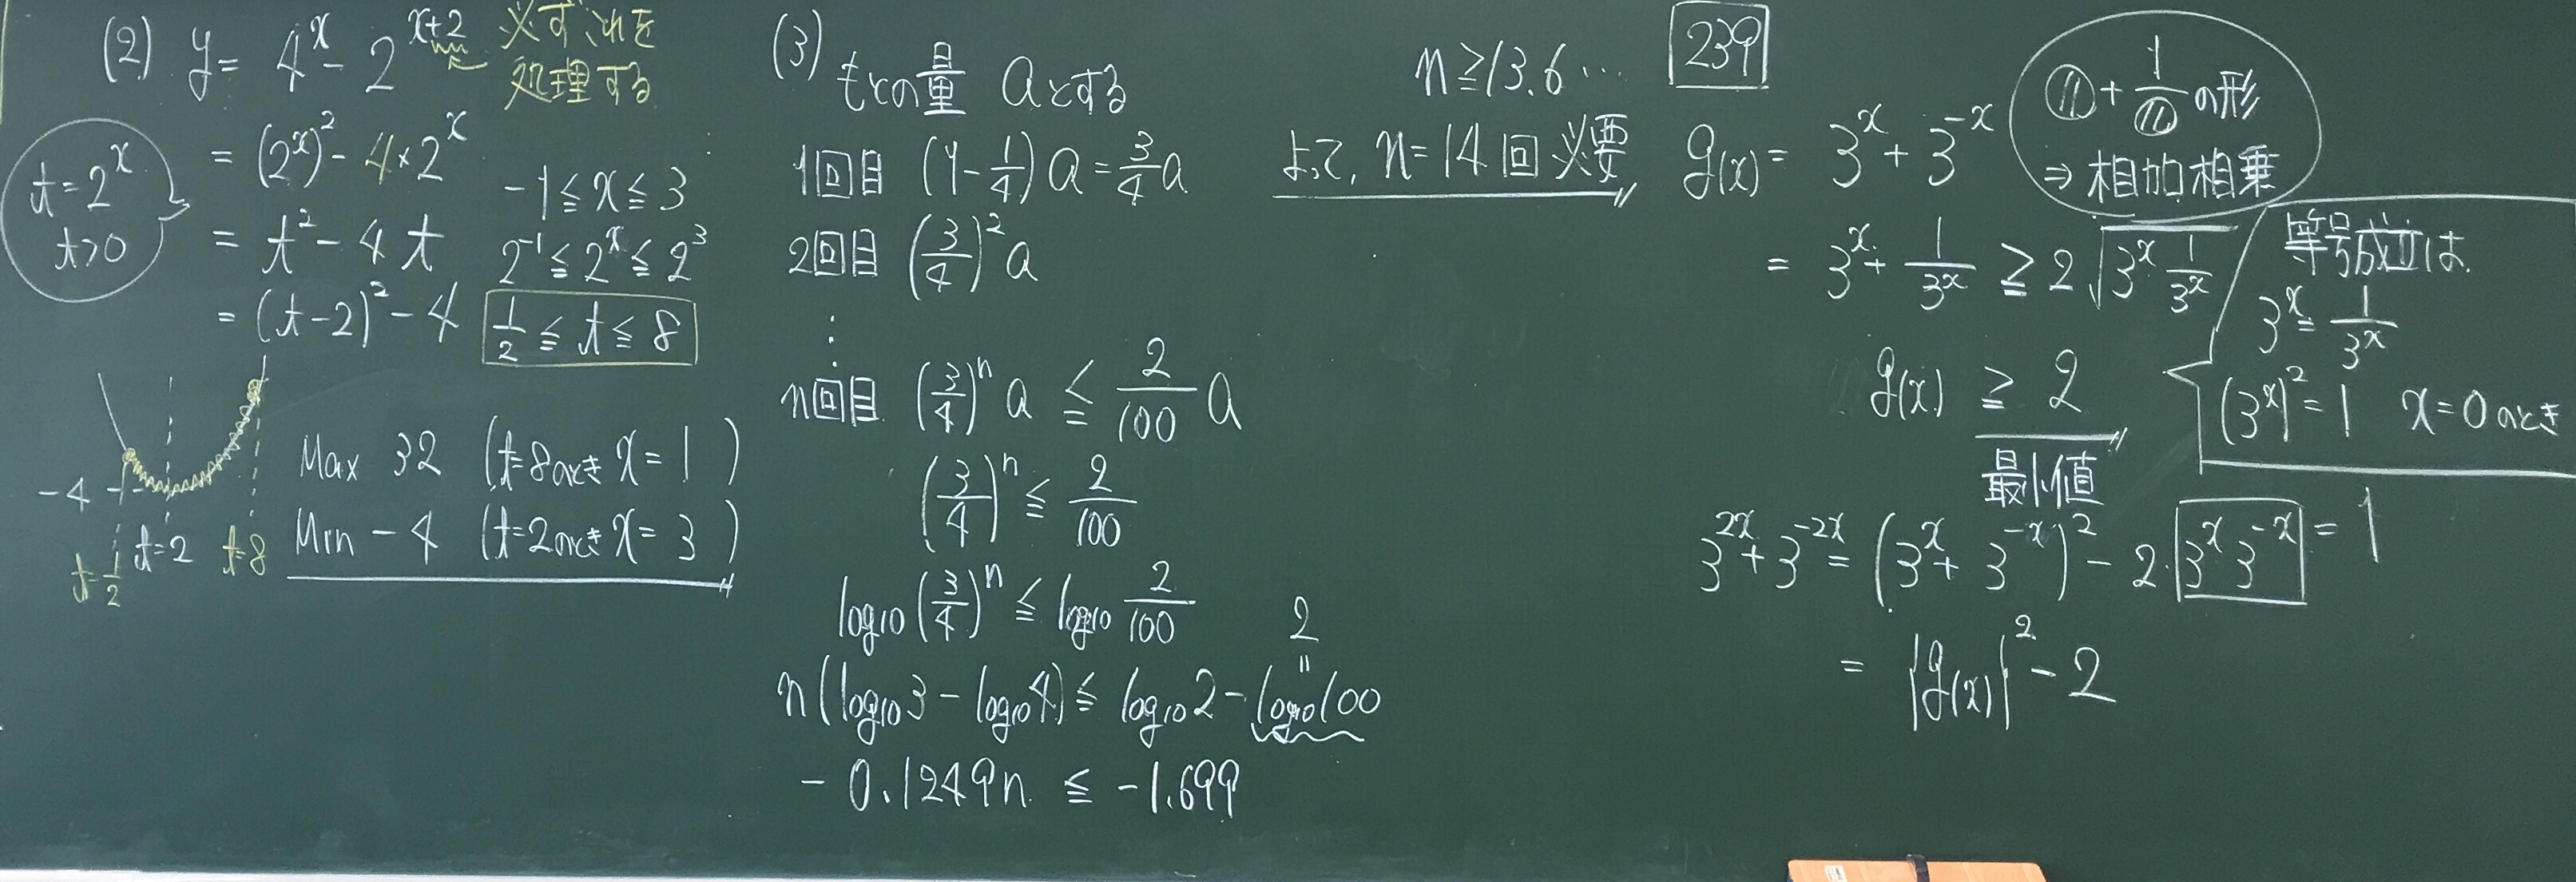 (2) y = 4^x - 2^{x+2} 必ずこれを
処理する
= (2^x)^2 - 4×2^x
t = 2^x
t>0
= t^2 - 4t
= (t-2)^2 - 4
-1 ≦ x ≦ 3
2^{-1} ≦ 2^x ≦ 2^3
1/2 ≦ t ≦ 8
-4
t=1/2 t=2 t=8
Max 32 (t=8のとき x=1)
Min -4 (t=2のとき x=3)
(3) もとの量 aとする
1回目 (1-1/4)a = 3/4 a
2回目 (3/4)^2 a
⋮
n回目 (3/4)^n a ≦ 2/100 a
(3/4)^n ≦ 2/100
log10 (3/4)^n ≦ log10 2/100
2
〃
n(log10 3 - log10 4) ≦ log10 2 - log10 100
-0.1249n ≦ -1.699
n ≧ 13.6…
よって, n=14回必要
239
g(x) = 3^x + 3^{-x}
◯ + 1/◯ の形
⇒ 相加相乗
= 3^x + 1/3^x ≧ 2√(3^x 1/3^x)
g(x) ≧ 2
最小値
等号成立は
3^x = 1/3^x
(3^x)^2 = 1 x=0のとき
3^{2x} + 3^{-2x} = (3^x + 3^{-x})^2 - 2・3^x 3^{-x} = 1
= |g(x)|^2 - 2